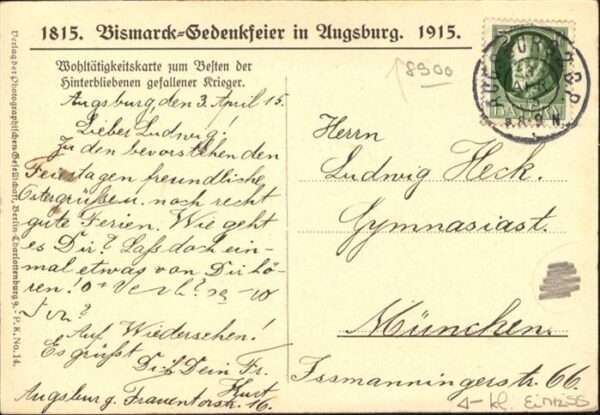 1815. Bismarck-Gedenkfeier in Augsburg. 1915.
Wohltätigkeitskarte zum Besten der
Hinterbliebenen gefallener Krieger.
Augsburg, den 3. April 15.
Lieber Ludwig!
Zu den bevorstehenden
Feiertagen freundliche
Ostergrüße u. noch recht
gute Ferien. Wie geht
es Dir? Laß doch ein-
mal etwas von Dir hö-
ren!
Auf Wiedersehen!
Es grüßt
Dich Dein Fr.
Kurt
Augsburg Frauentorstr. 16.
8900
Herrn
Ludwig Heck.
Gymnasiast.
München.
Issmanningerstr. 66.
kl. Einriss
Verlag der Photographischen Gesellschaft, Berlin-Charlottenburg 9. - P.K. No. 14.
AUGSBURG
APR
8-9 N.